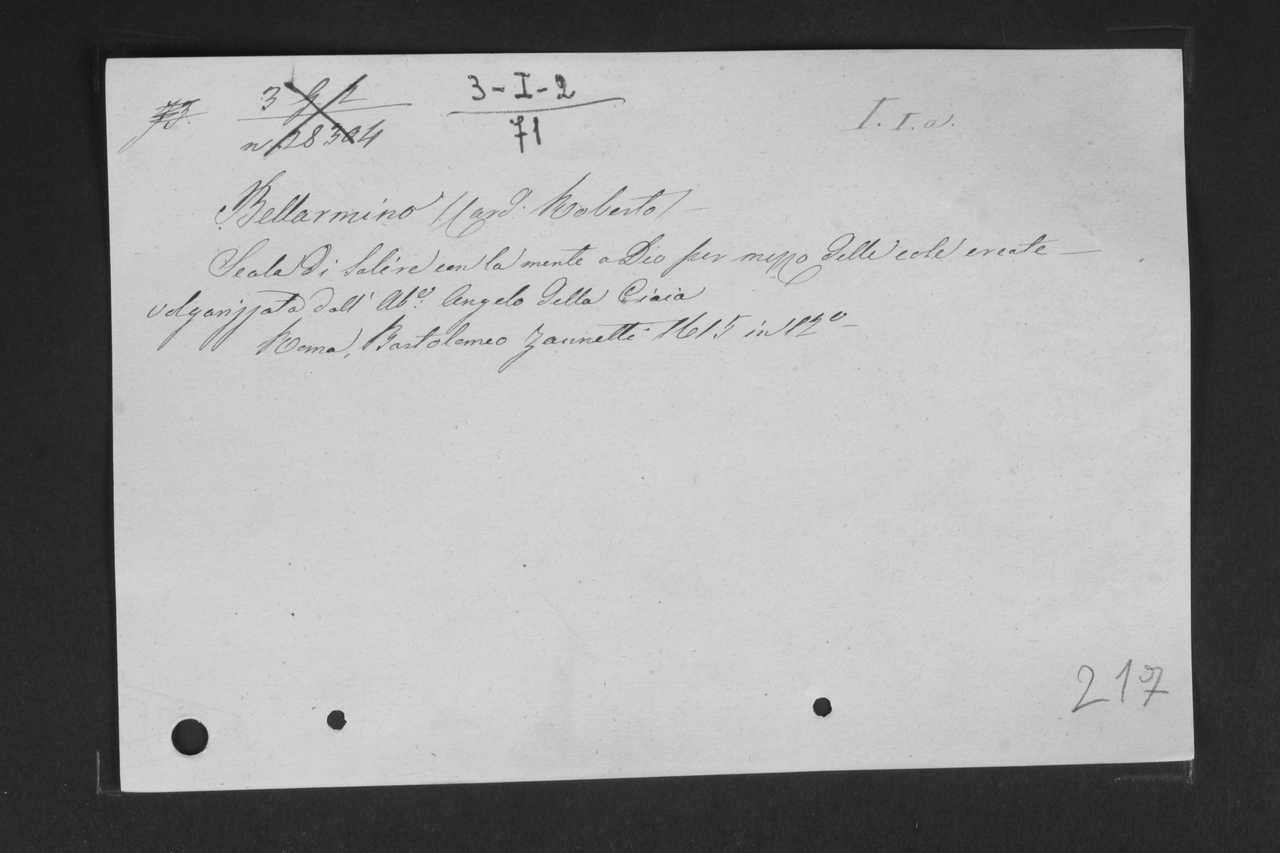 3-I-2
71
I. I. a.
Bellarmino (Card. Roberto) —
Scala di salire con la mente a Dio per mezzo delle cose create —
volgarizzata dall' Ab.e Angelo della Ciaia
Roma, Bartolomeo Zannetti 1615 in 12° —
217